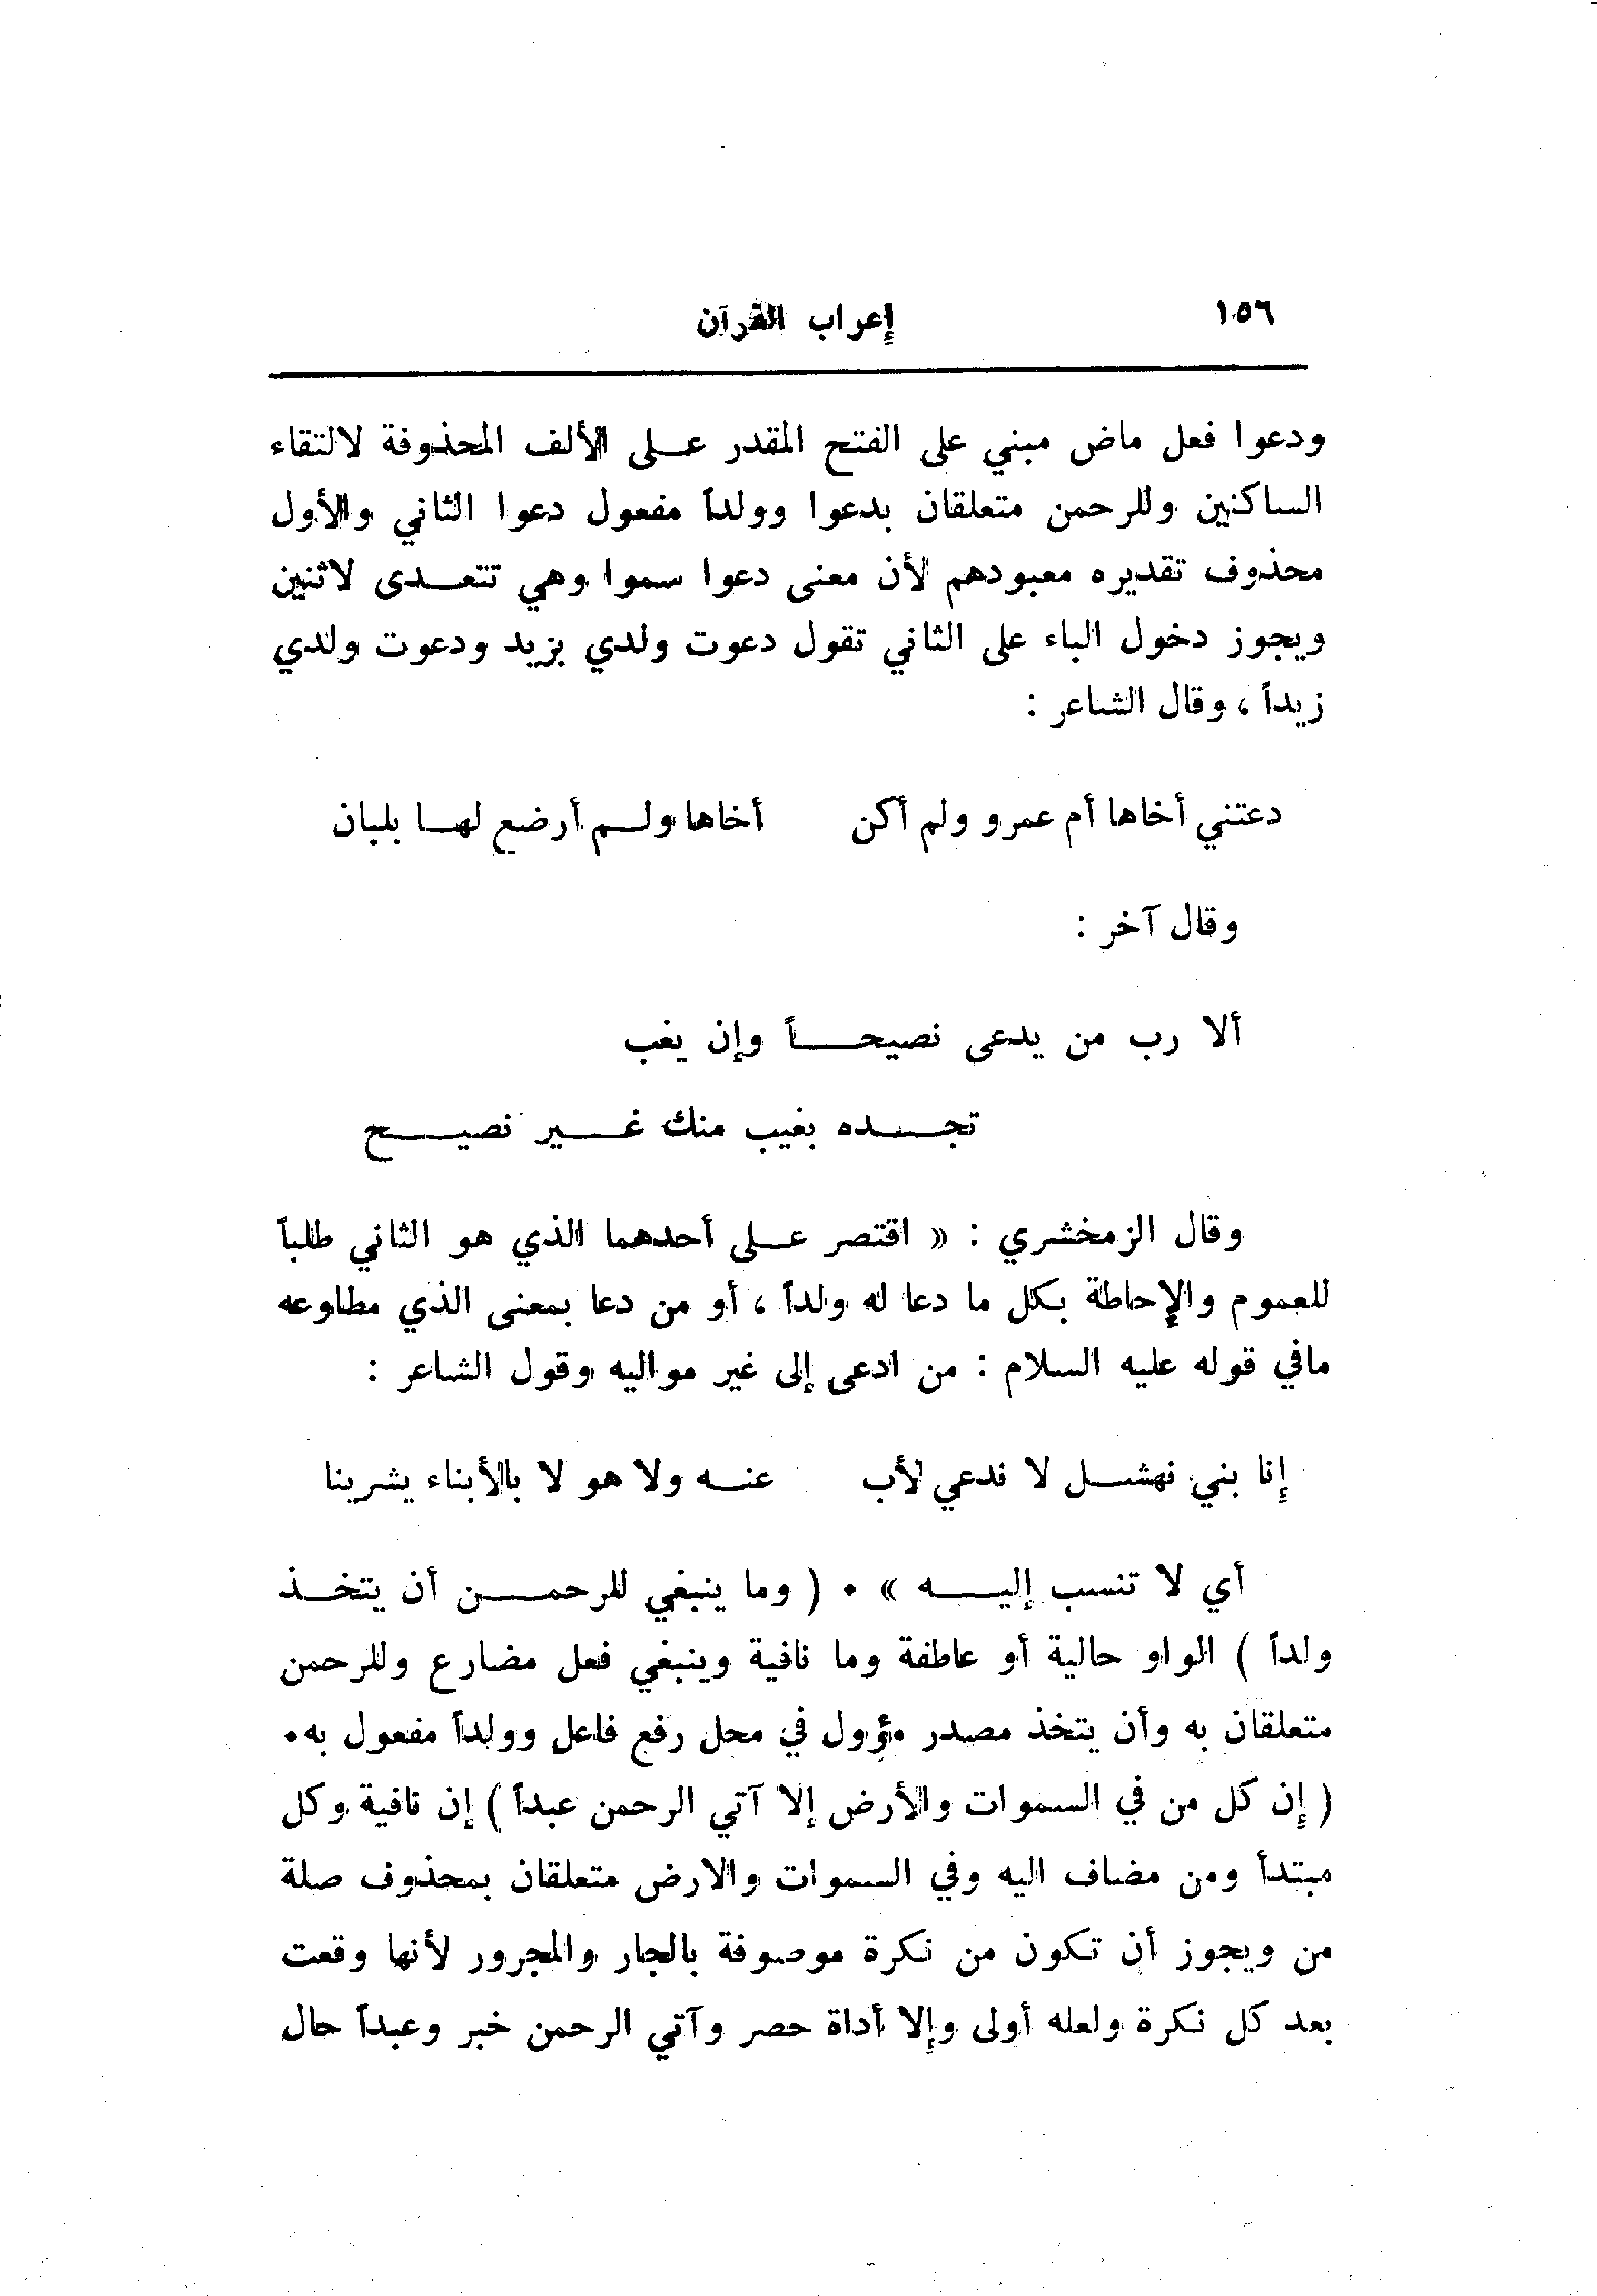 ١٥٦
إعراب القرآن
ودعوا فعل ماض مبني على الفتح المقدر عــلى الألف المحذوفة لالتقاء
الساكنين وللرحمن متعلقان بدعوا وولداً مفعول دعوا الثاني والأول
محذوف تقديره معبودهم لأن معنى دعوا سموا وهي تتعــدى لاثنين
ويجوز دخول الباء على الثاني تقول دعوت ولدي بزيد ودعوت ولدي
زيداً ، وقال الشاعر :
دعتني أخاها أم عمرو ولم أكن أخاها ولــم أرضع لهــا بلبان
وقال آخر :
ألا رب من يدعى نصيحــاً وإن يغب
تجــده بغيب منك غــير نصيــح
وقال الزمخشري : « اقتصر عــلى أحدهما الذي هو الثاني طلباً
للعموم والإحاطة بكل ما دعا له ولداً ، أو من دعا بمعنى الذي مطاوعه
مافي قوله عليه السلام : من ادعى إلى غير مواليه وقول الشاعر :
إنا بني نهشــل لا ندعي لأب عنــه ولا هو لا بالأبناء يشرينا
أي لا تنسب إليــه » . ( وما ينبغي للرحمــن أن يتخــذ
ولداً ) الواو حالية أو عاطفة وما نافية وينبغي فعل مضارع وللرحمن
متعلقان به وأن يتخذ مصدر مؤول في محل رفع فاعل وولداً مفعول به .
( إن كل من في السموات والأرض إلا آتي الرحمن عبداً ) إن نافية وكل
مبتدأ ومن مضاف اليه وفي السموات والارض متعلقان بمحذوف صلة
من ويجوز أن تكون من نكرة موصوفة بالجار والمجرور لأنها وقعت
بعد كل نكرة ولعله أولى وإلا أداة حصر وآتي الرحمن خبر وعبداً حال